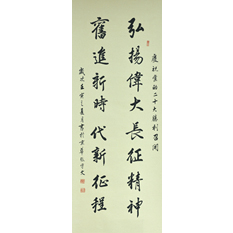 慶祝黨的二十大勝利召開
弘揚偉大長征精神
奮進新時代新征程
歲次壬寅之夏